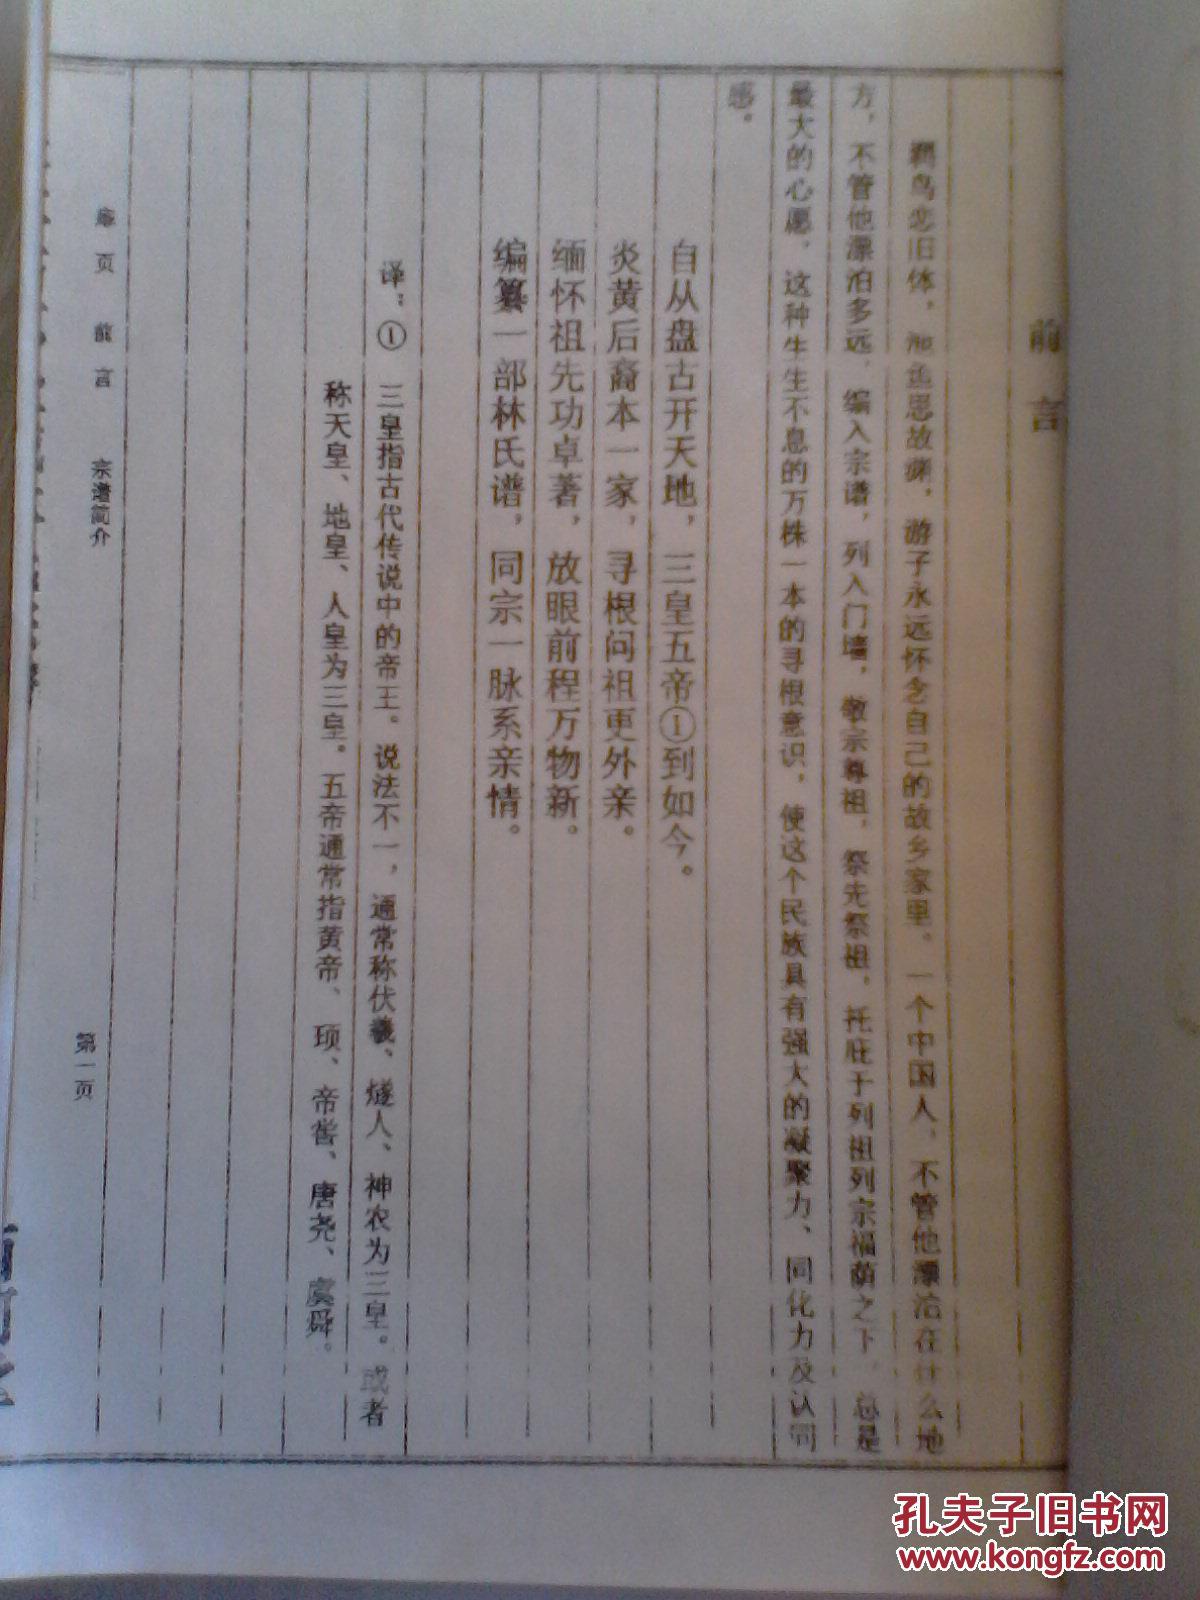 前言
羁鸟恋旧体，池鱼思故渊，游子永远怀念自己的故乡家里。一个中国人，不管他漂泊在什么地
方，不管他漂泊多远，编入宗谱，列入门墙，敬宗尊祖，祭先祭祖，托庇于列祖列宗福荫之下，总是
最大的心愿，这种生生不息的万株一本的寻根意识，使这个民族具有强大的凝聚力、同化力及认同
感。
自从盘古开天地，三皇五帝①到如今。
炎黄后裔本一家，寻根问祖更外亲。
缅怀祖先功卓著，放眼前程万物新。
编纂一部林氏谱，同宗一脉系亲情。
译：① 三皇指古代传说中的帝王。说法不一，通常称伏羲、燧人、神农为三皇。或者
称天皇、地皇、人皇为三皇。五帝通常指黄帝、顼、帝喾、唐尧、虞舜。
扉页 前言 宗谱简介 第一页
孔夫子旧书网
www.kongfz.com